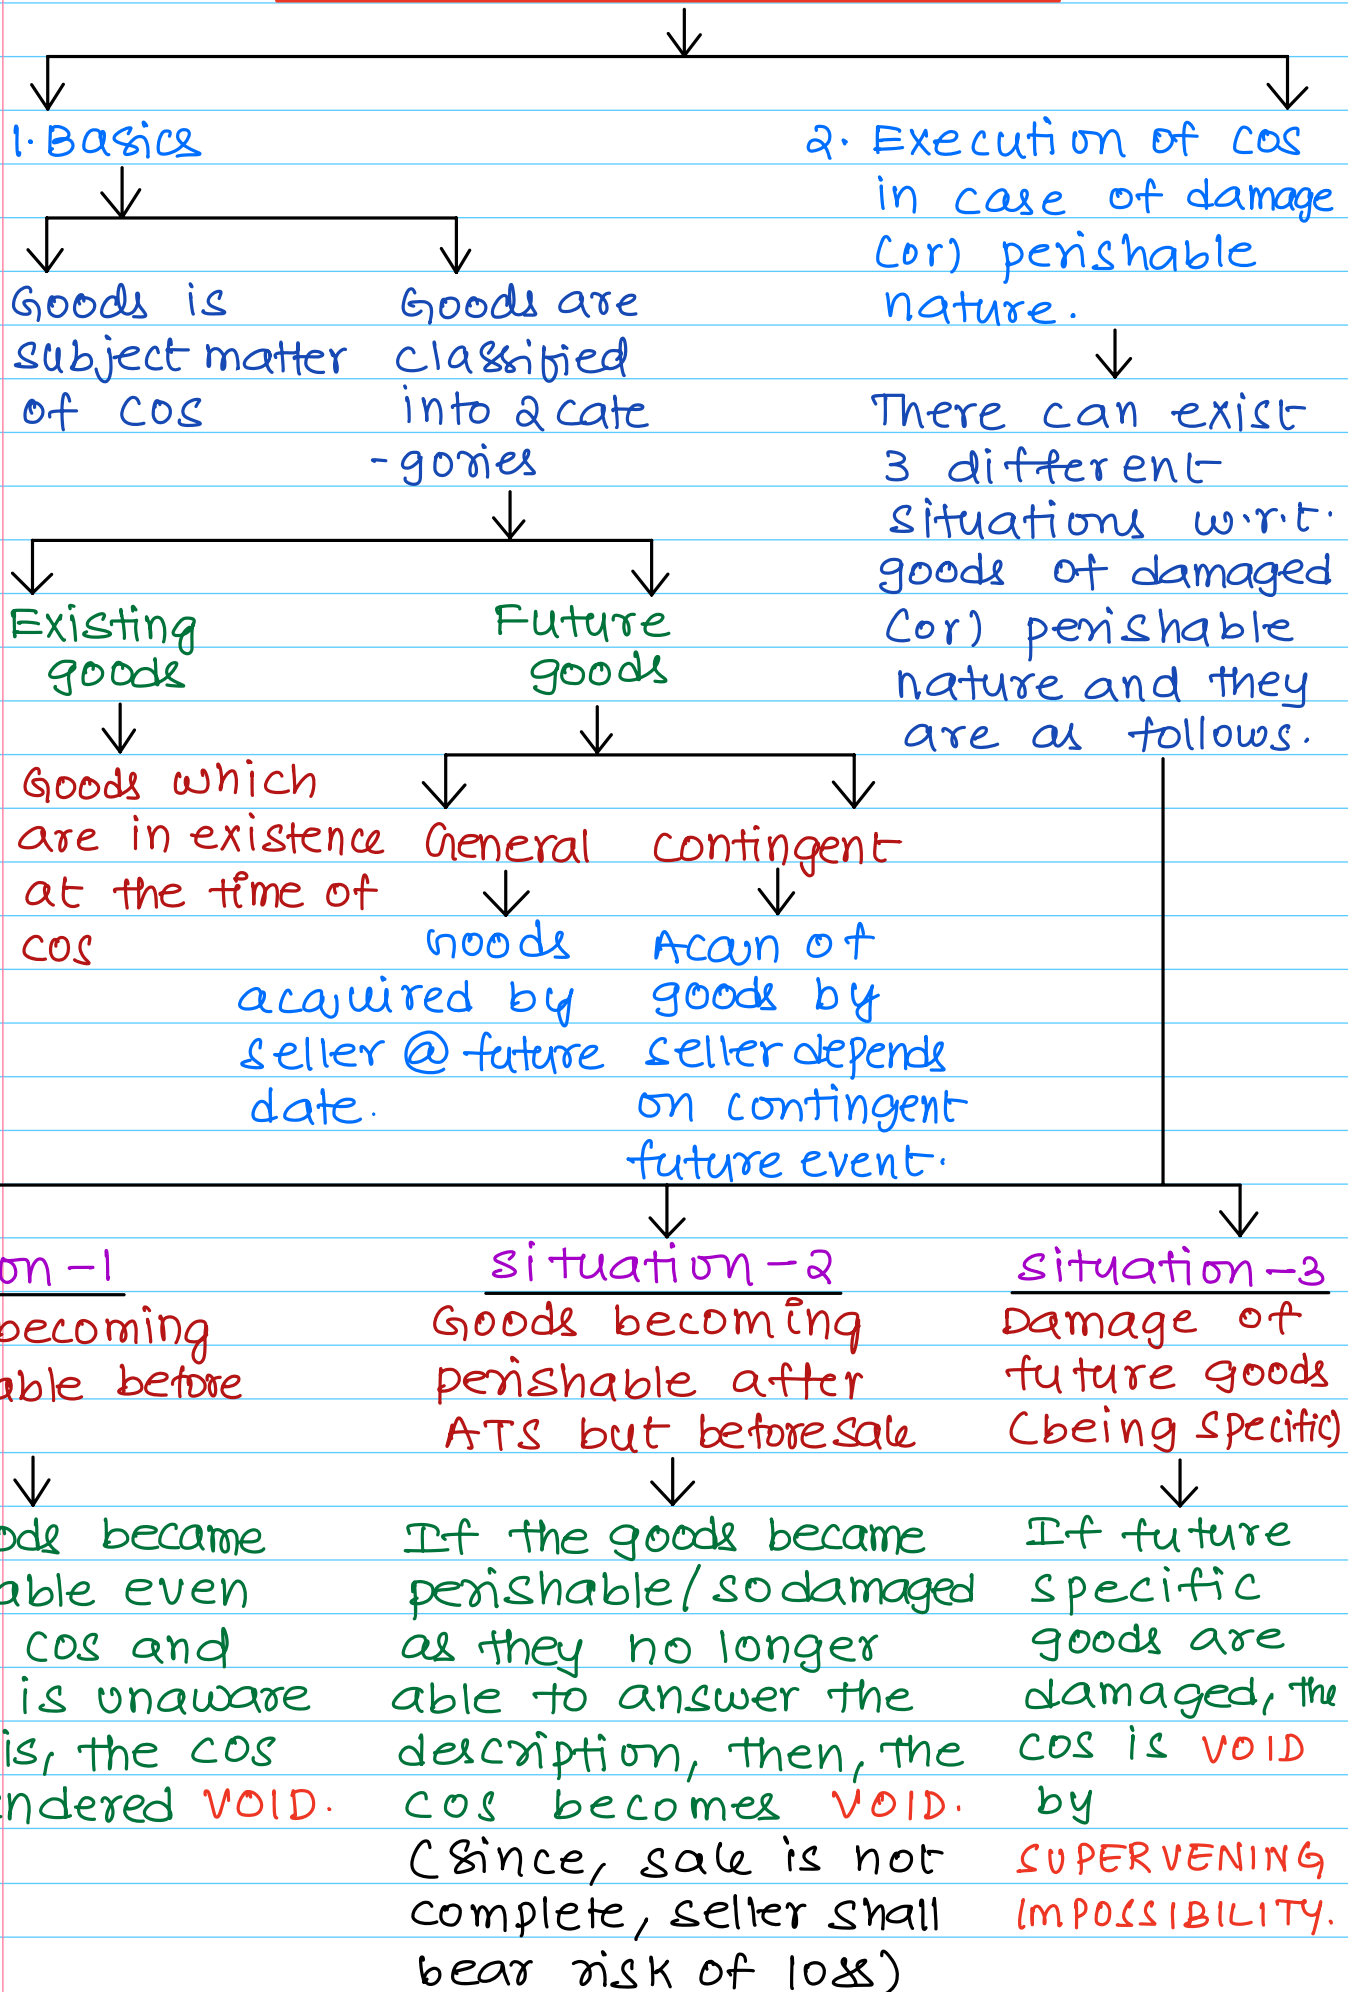 1. Basics
Goods is
subject matter
of COS
Goods are
classified
into 2 cate
-gories
Existing
goods
Goods which
are in existence
at the time of
COS
Future
goods
General
Goods
acquired by
seller @ future
date.
Contingent
Acqun of
goods by
seller depends
on contingent
future event.
2. Execution of COS
in case of damage
(or) perishable
nature.
There can exist
3 different
situations w.r.t.
goods of damaged
(or) perishable
nature and they
are as follows.
on-1
becoming
able before
ods became
able even
COS and
is unaware
is, the COS
ndered VOID.
Situation-2
Goods becoming
perishable after
ATS but before sale
If the goods became
perishable/so damaged
as they no longer
able to answer the
description, then, the
COS becomes VOID.
(Since, sale is not
complete, seller shall
bear risk of loss)
Situation-3
Damage of
future goods
(being specific)
If future
specific
goods are
damaged, the
COS is VOID
by
SUPERVENING
IMPOSSIBILITY.